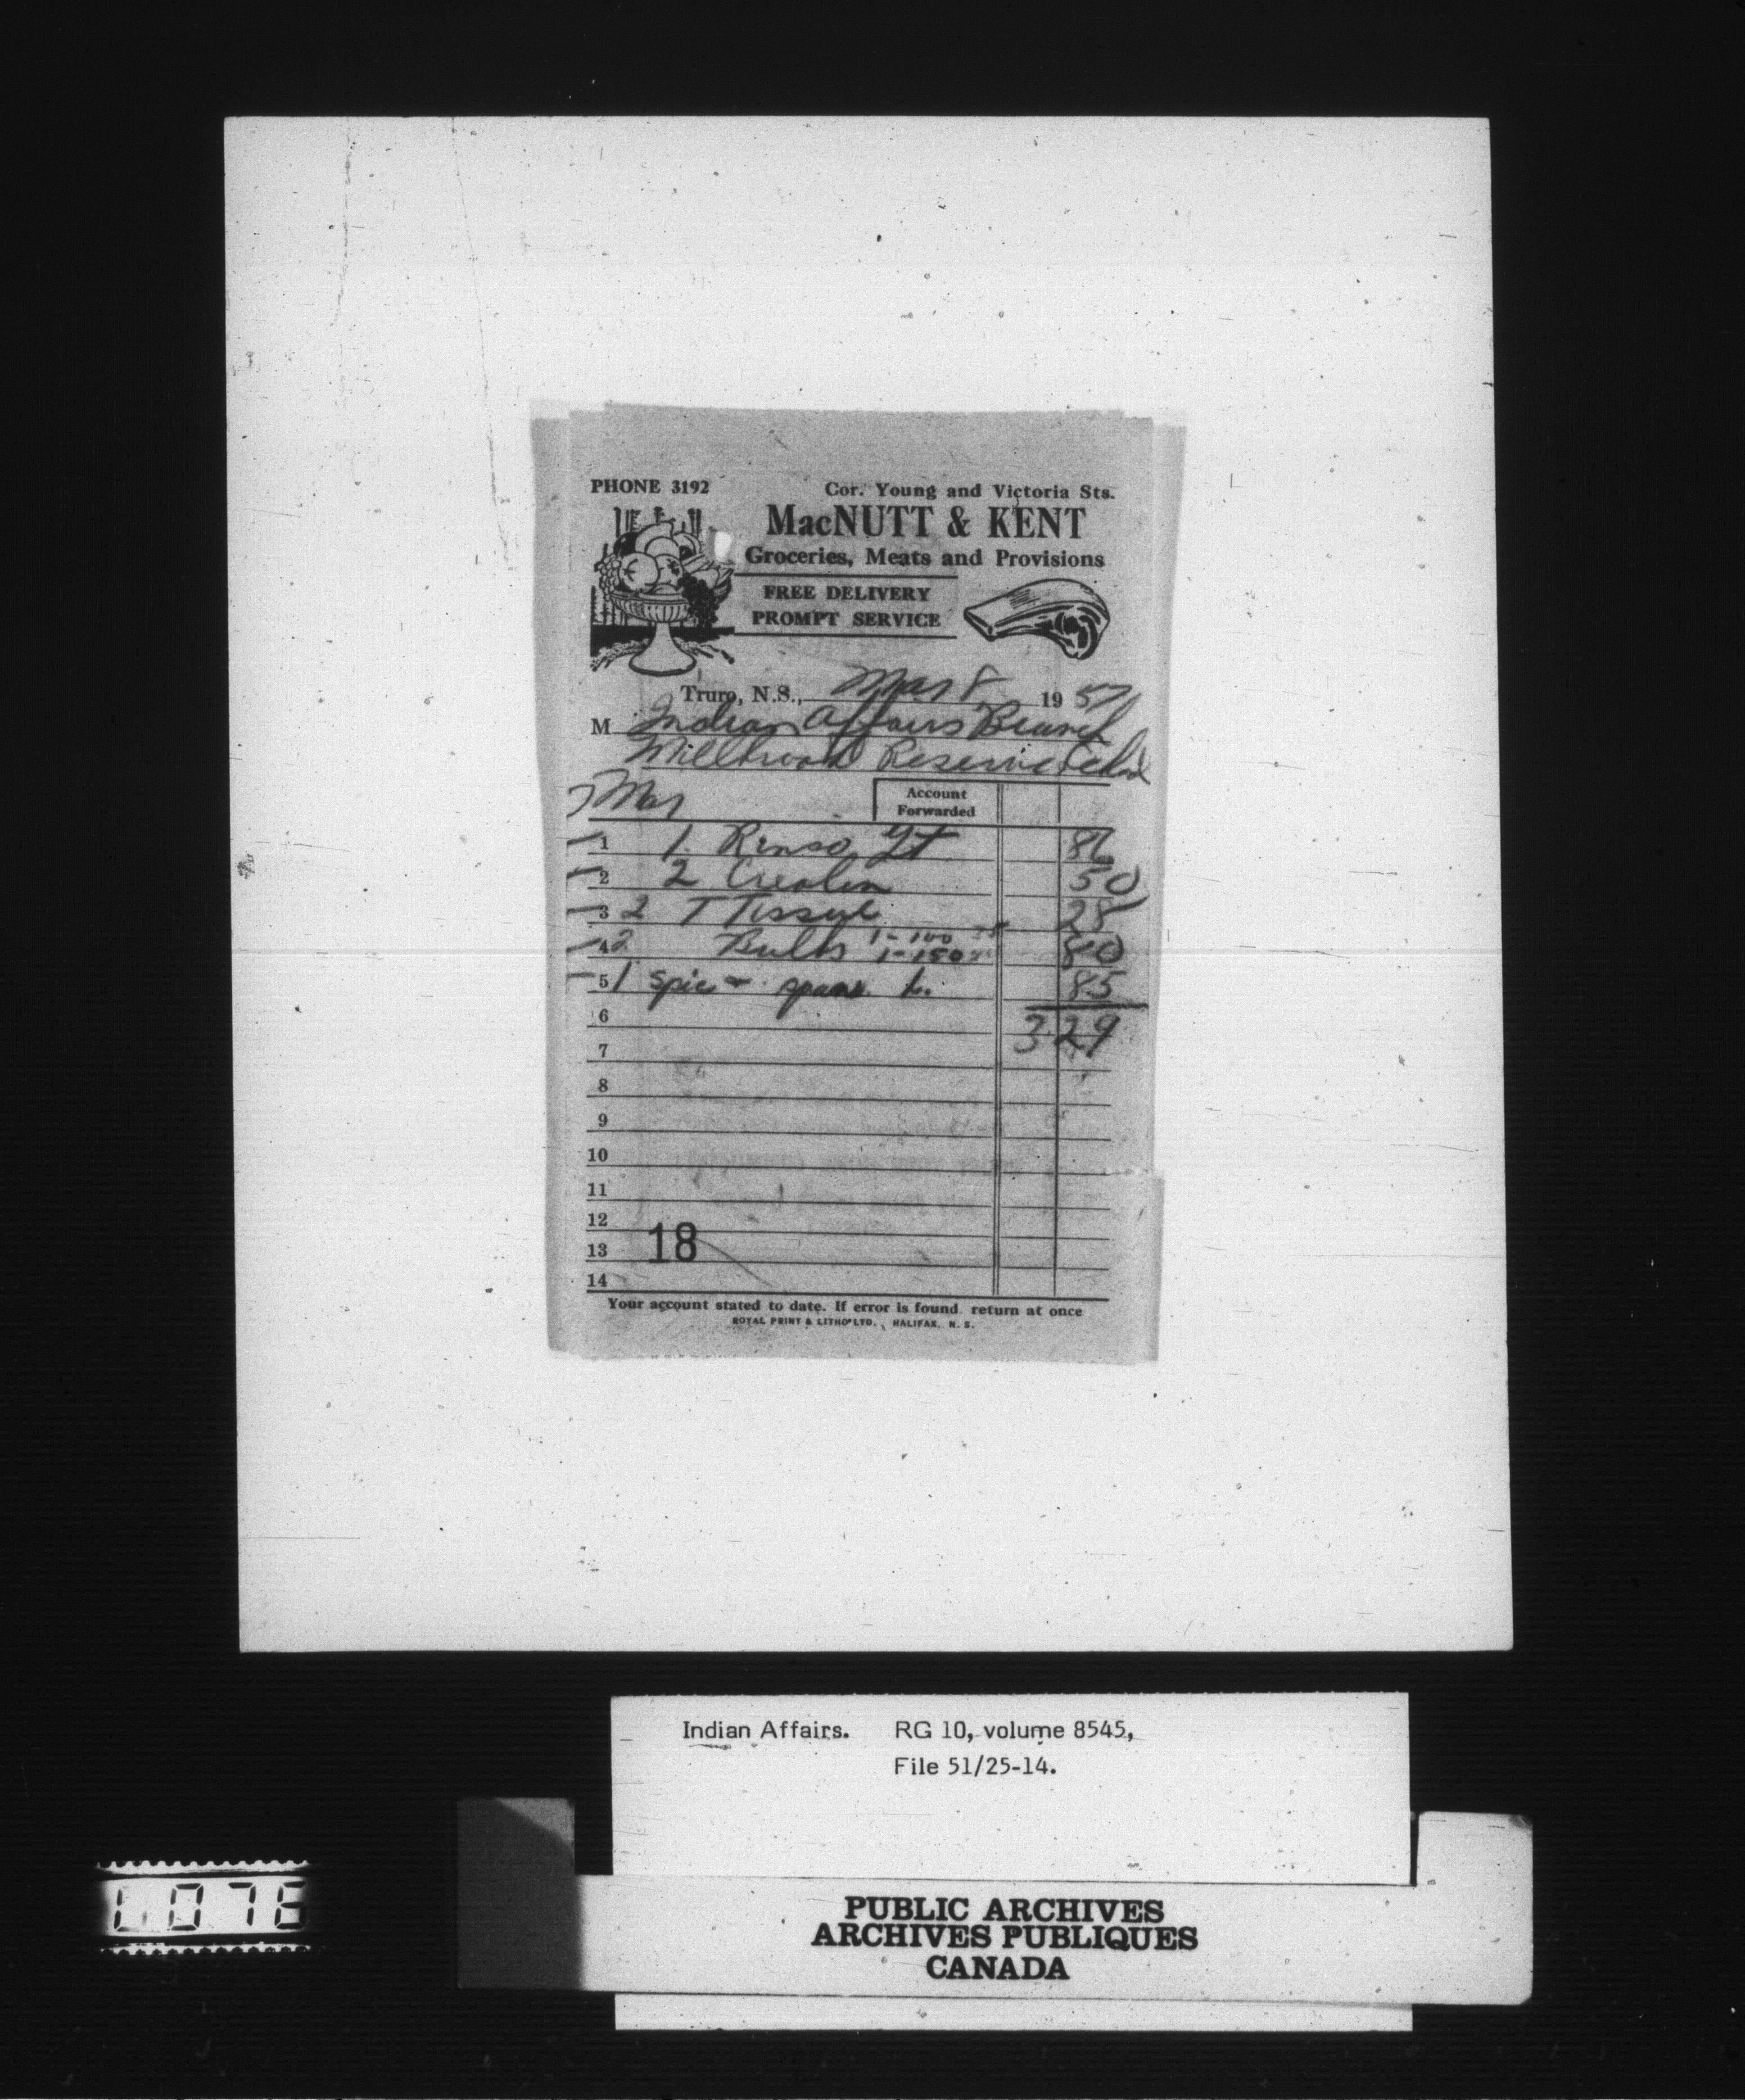 PHONE 3192 Cor. Young and Victoria Sts.
MacNUTT & KENT
Groceries, Meats and Provisions
FREE DELIVERY
PROMPT SERVICE
Truro, N.S., Mar 8 1957
M Indian Affairs Branch
Millbrook Reserve
Mar
Account
Forwarded
1 1 Rinso gt 86
2 2 Creolin 50
3 2 T Tissue 28
4 2 Bulbs 1-100 1-150 80
5 1 Spic & span L. 85
6 3 29
7
8
9
10
11
12
13 18
14
Your account stated to date. If error is found return at once
ROYAL PRINT & LITHO LTD., HALIFAX, N. S.
Indian Affairs. RG 10, volume 8545,
File 51/25-14.
PUBLIC ARCHIVES
ARCHIVES PUBLIQUES
CANADA